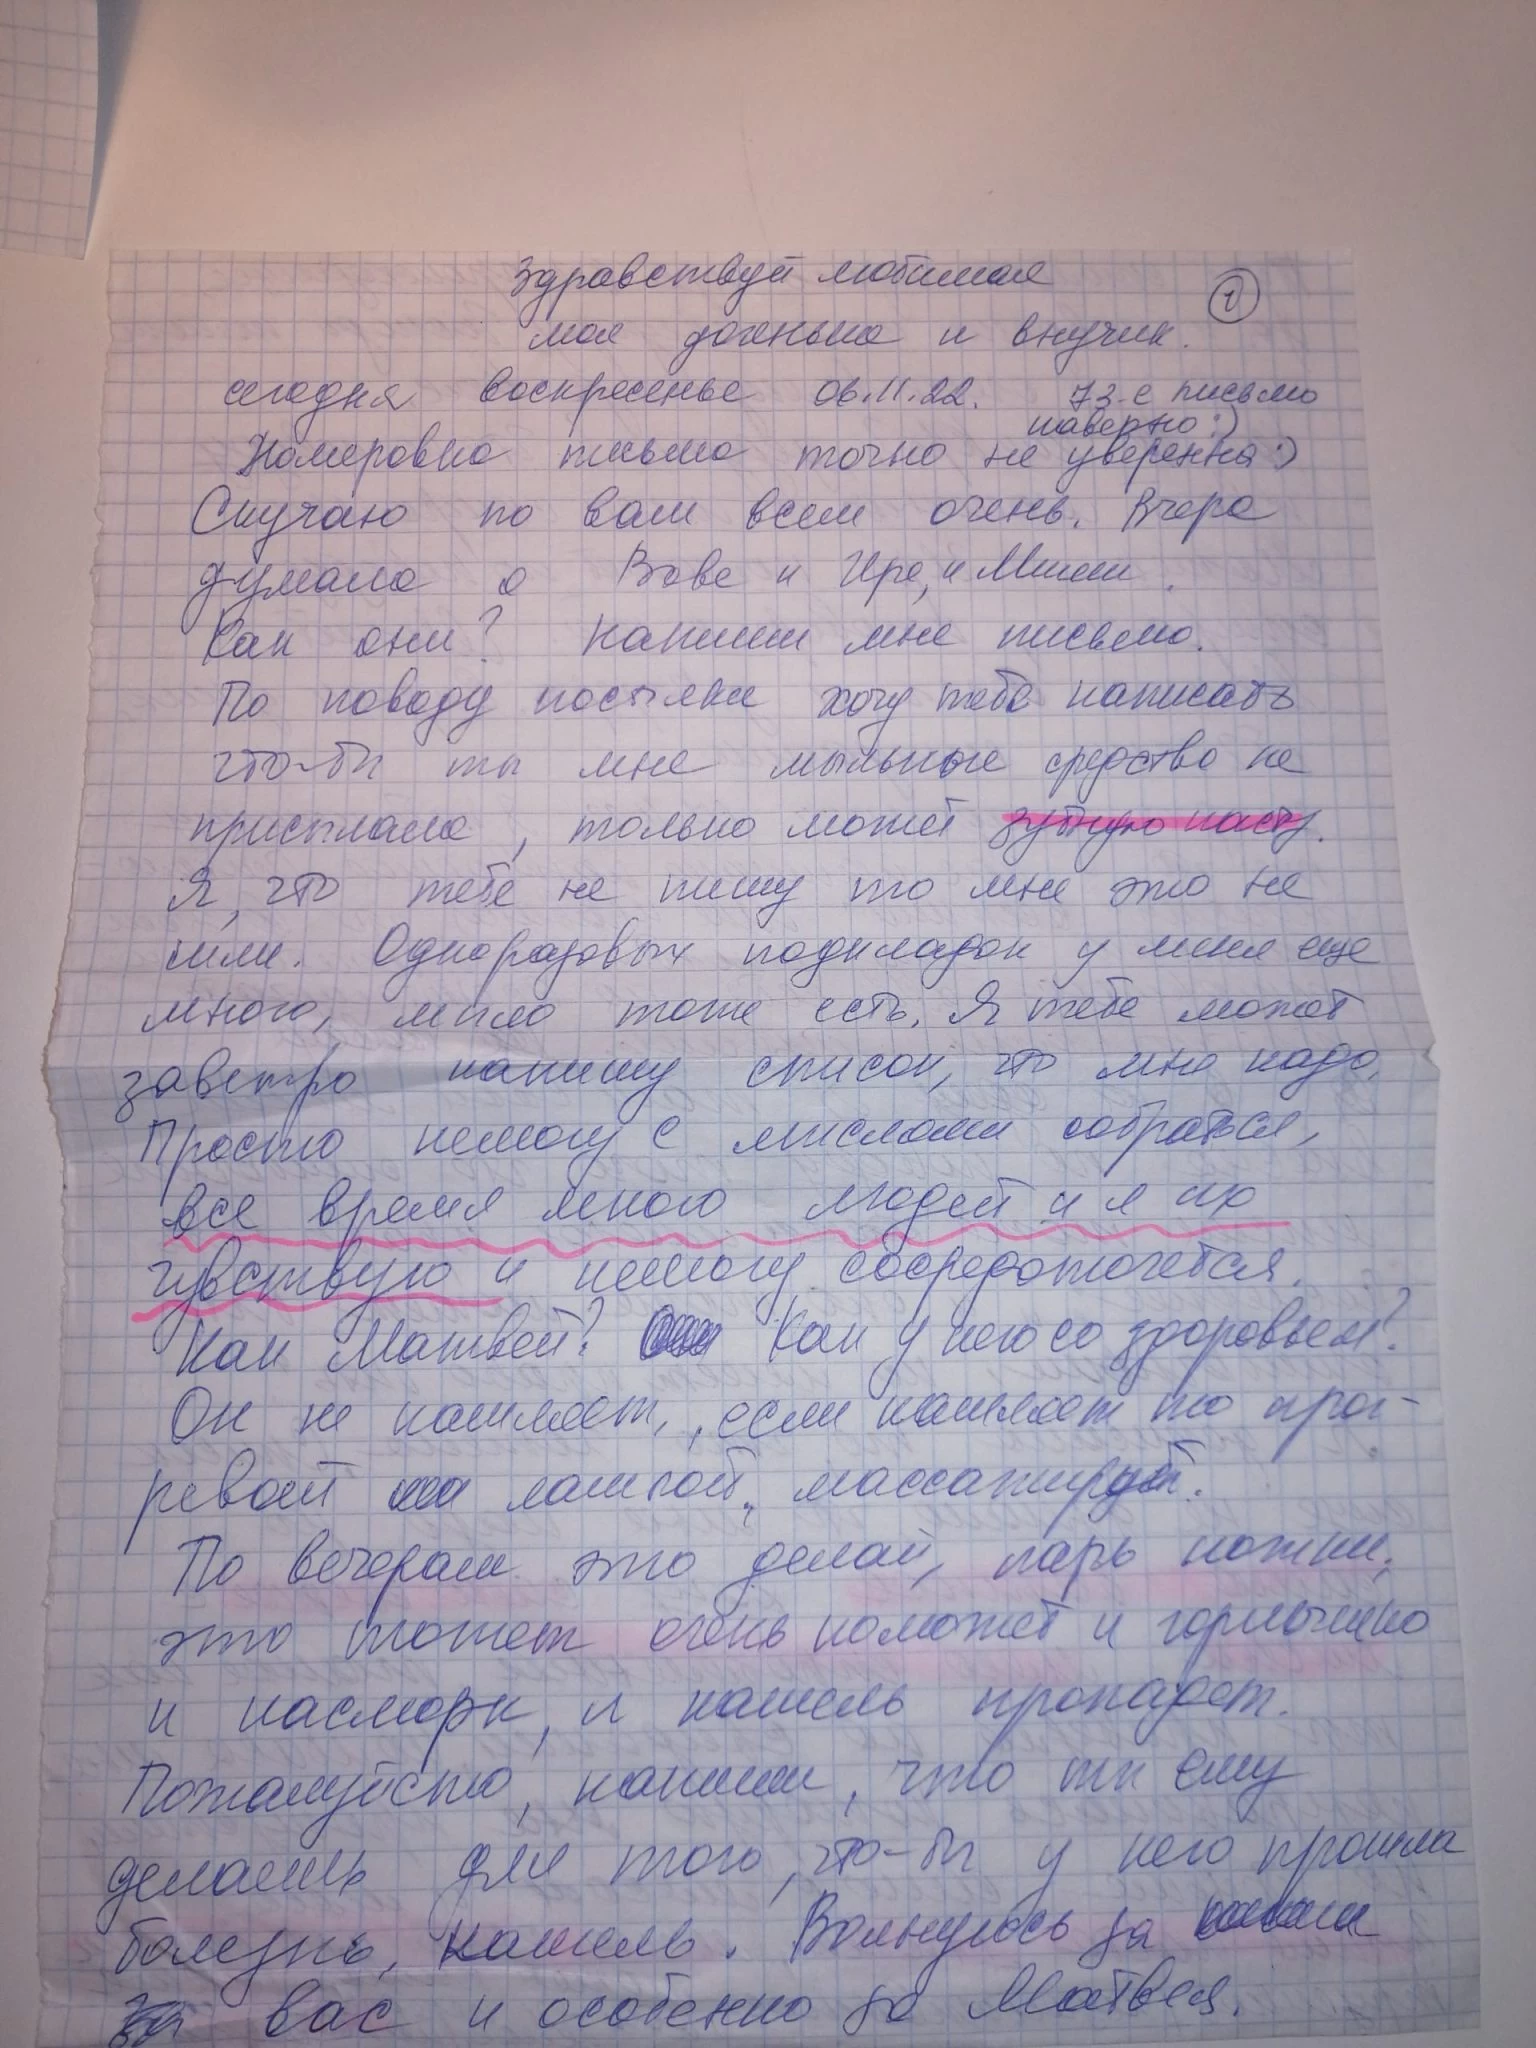 Здравствуй любимая
1
моя доченька и внучик.
сегодня воскресенье 06.11.22. 73-е письмо
наверно :)
Номеровка письма точно не уверенна :)
Скучаю по вам всем очень. Вчера
думала о Вове и Ире, и Миши.
Как они? Напиши мне письмо.
По поводу посылки хочу тебе написать
что-бы ты мне мыльные средства не
присылала, только может зубную пасту.
Я, что тебе не пишу то мне это не
шли. Одноразовых подкладок у меня еще
много, мыло тоже есть. Я тебе может
завтро напишу список, что мне надо.
Просто немогу с мыслями собраться,
все время много людей и я их
чувствую и немогу сосредоточется.
Как Матвей? Как у него со здоровьем?
Он не кашляет, если кашляет то прог-
ревай лампой, массажируй.
По вечерам это делай, парь ножки,
это может очень поможет и горлышко
и насморк, и кашель пропадет.
Пожалуйста, напиши, что ты ему
делаешь для того, что-бы у него прошла
болезнь, кашель. Волнуюсь за
за вас и особенно за Матвея.